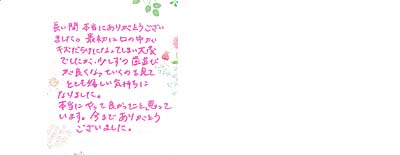 長い間 本当にありがとうござい
ました。最初は口の中が
キズだらけになってしまい大変
でしたが、少しずつ歯並び
が良くなっていくのを見て
とても嬉しい気持ちに
なりました。
本当にやって良かったこと思って
います。今までありがとう
ございました。